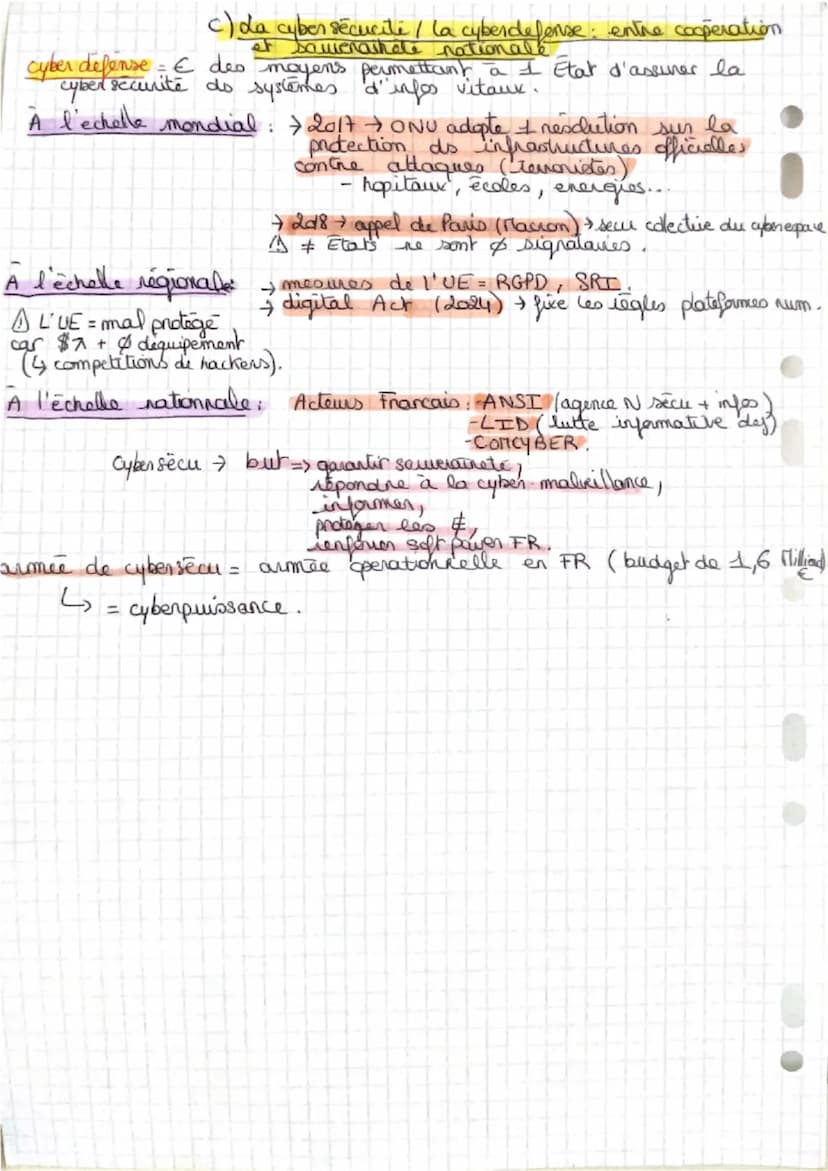 c) La cybersécurité / la cyberdéfense : entre coopération
et souveraineté nationale
cyberdéfense = € des moyens permettant à 1 État d'assurer la
cybersécurité ds systèmes d'infos vitaux.
À l'échelle mondial : → 2017 → ONU adopte 1 résolution sur la
protection ds infrastructures officielles
contre attaques (terroristes)
- hopitaux, écoles, énergies...
→ 2018 → appel de Paris (Macron) → secu collective du cyberespace
⚠ ≠ États ne sont ∅ signataires.
À l'échelle régionale : → mesures de l'UE = RGPD, SRI.
→ digital Act (2024) → fixe les règles plateformes num.
⚠ L'UE = mal protégé
car $↗ + ∅ d'équipement
(↳ compétitions de hackers).
À l'échelle nationnale : Acteurs Francais : -ANSI (agence N sécu + infos)
-LID (lutte informative def)
-COMCYBER.
Cybersécu → but => garantir souveraineté,
répondre à la cyber-malveillance,
informer,
protéger les €,
renforcer soft power FR.
armée de cybersécu = armée opérationnelle en FR (budget de 1,6 Milliard)
€
↳ = cyberpuissance.